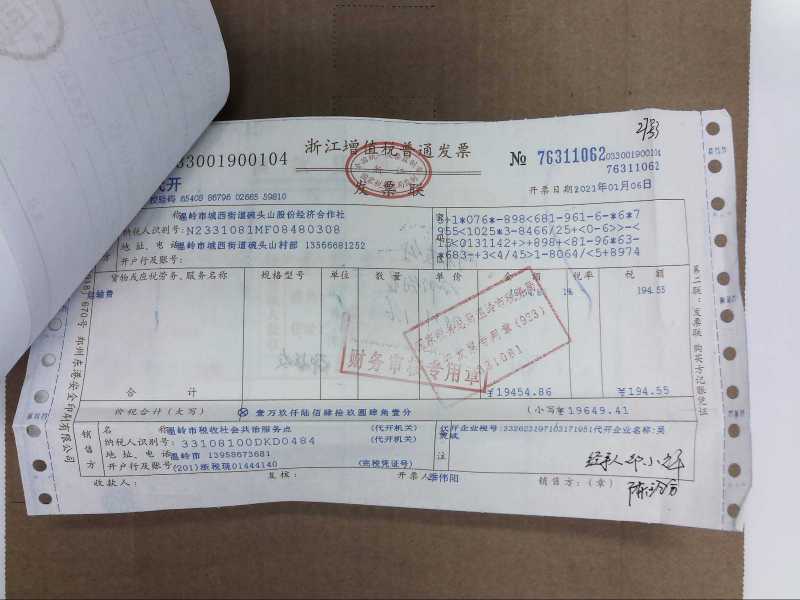 2号
033001900104
浙江增值税普通发票
发票联
№ 76311062
033001900104
76311062
代开
校验码 65408 86796 02665 59810
开票日期 2021年01月06日
温岭市城西街道碗头山股份经济合作社
纳税人识别号: N2331081MF08480308
地址、电话 温岭市城西街道碗头山村部 13566681252
开户行及账号:
955<1025*3-8466/25+<0-6>>-<
*683-+3<4/45>1-8064/<5+8974
货物或应税劳务、服务名称 规格型号 单位 数量 单价 金额 税率 税额
运输费 1% 194.55
财务审核专用章
合计 ¥19454.86 ¥194.55
价税合计(大写) 壹万玖仟陆佰肆拾玖圆肆角壹分 (小写) ¥19649.41
温岭市税收社会共治服务点 (代开机关)
纳税人识别号: 33108100DKD0484 (代开机关)
地址、电话 温岭市 13958673681
开户行及账号 (201)浙税现01444140 (完税凭证号)
代开企业税号:332623197103171951 代开企业名称:吴
收款人: 复核: 开票人: 季伟阳 销售方:(章)
经手人
第二联:发票联 购买方记账凭证